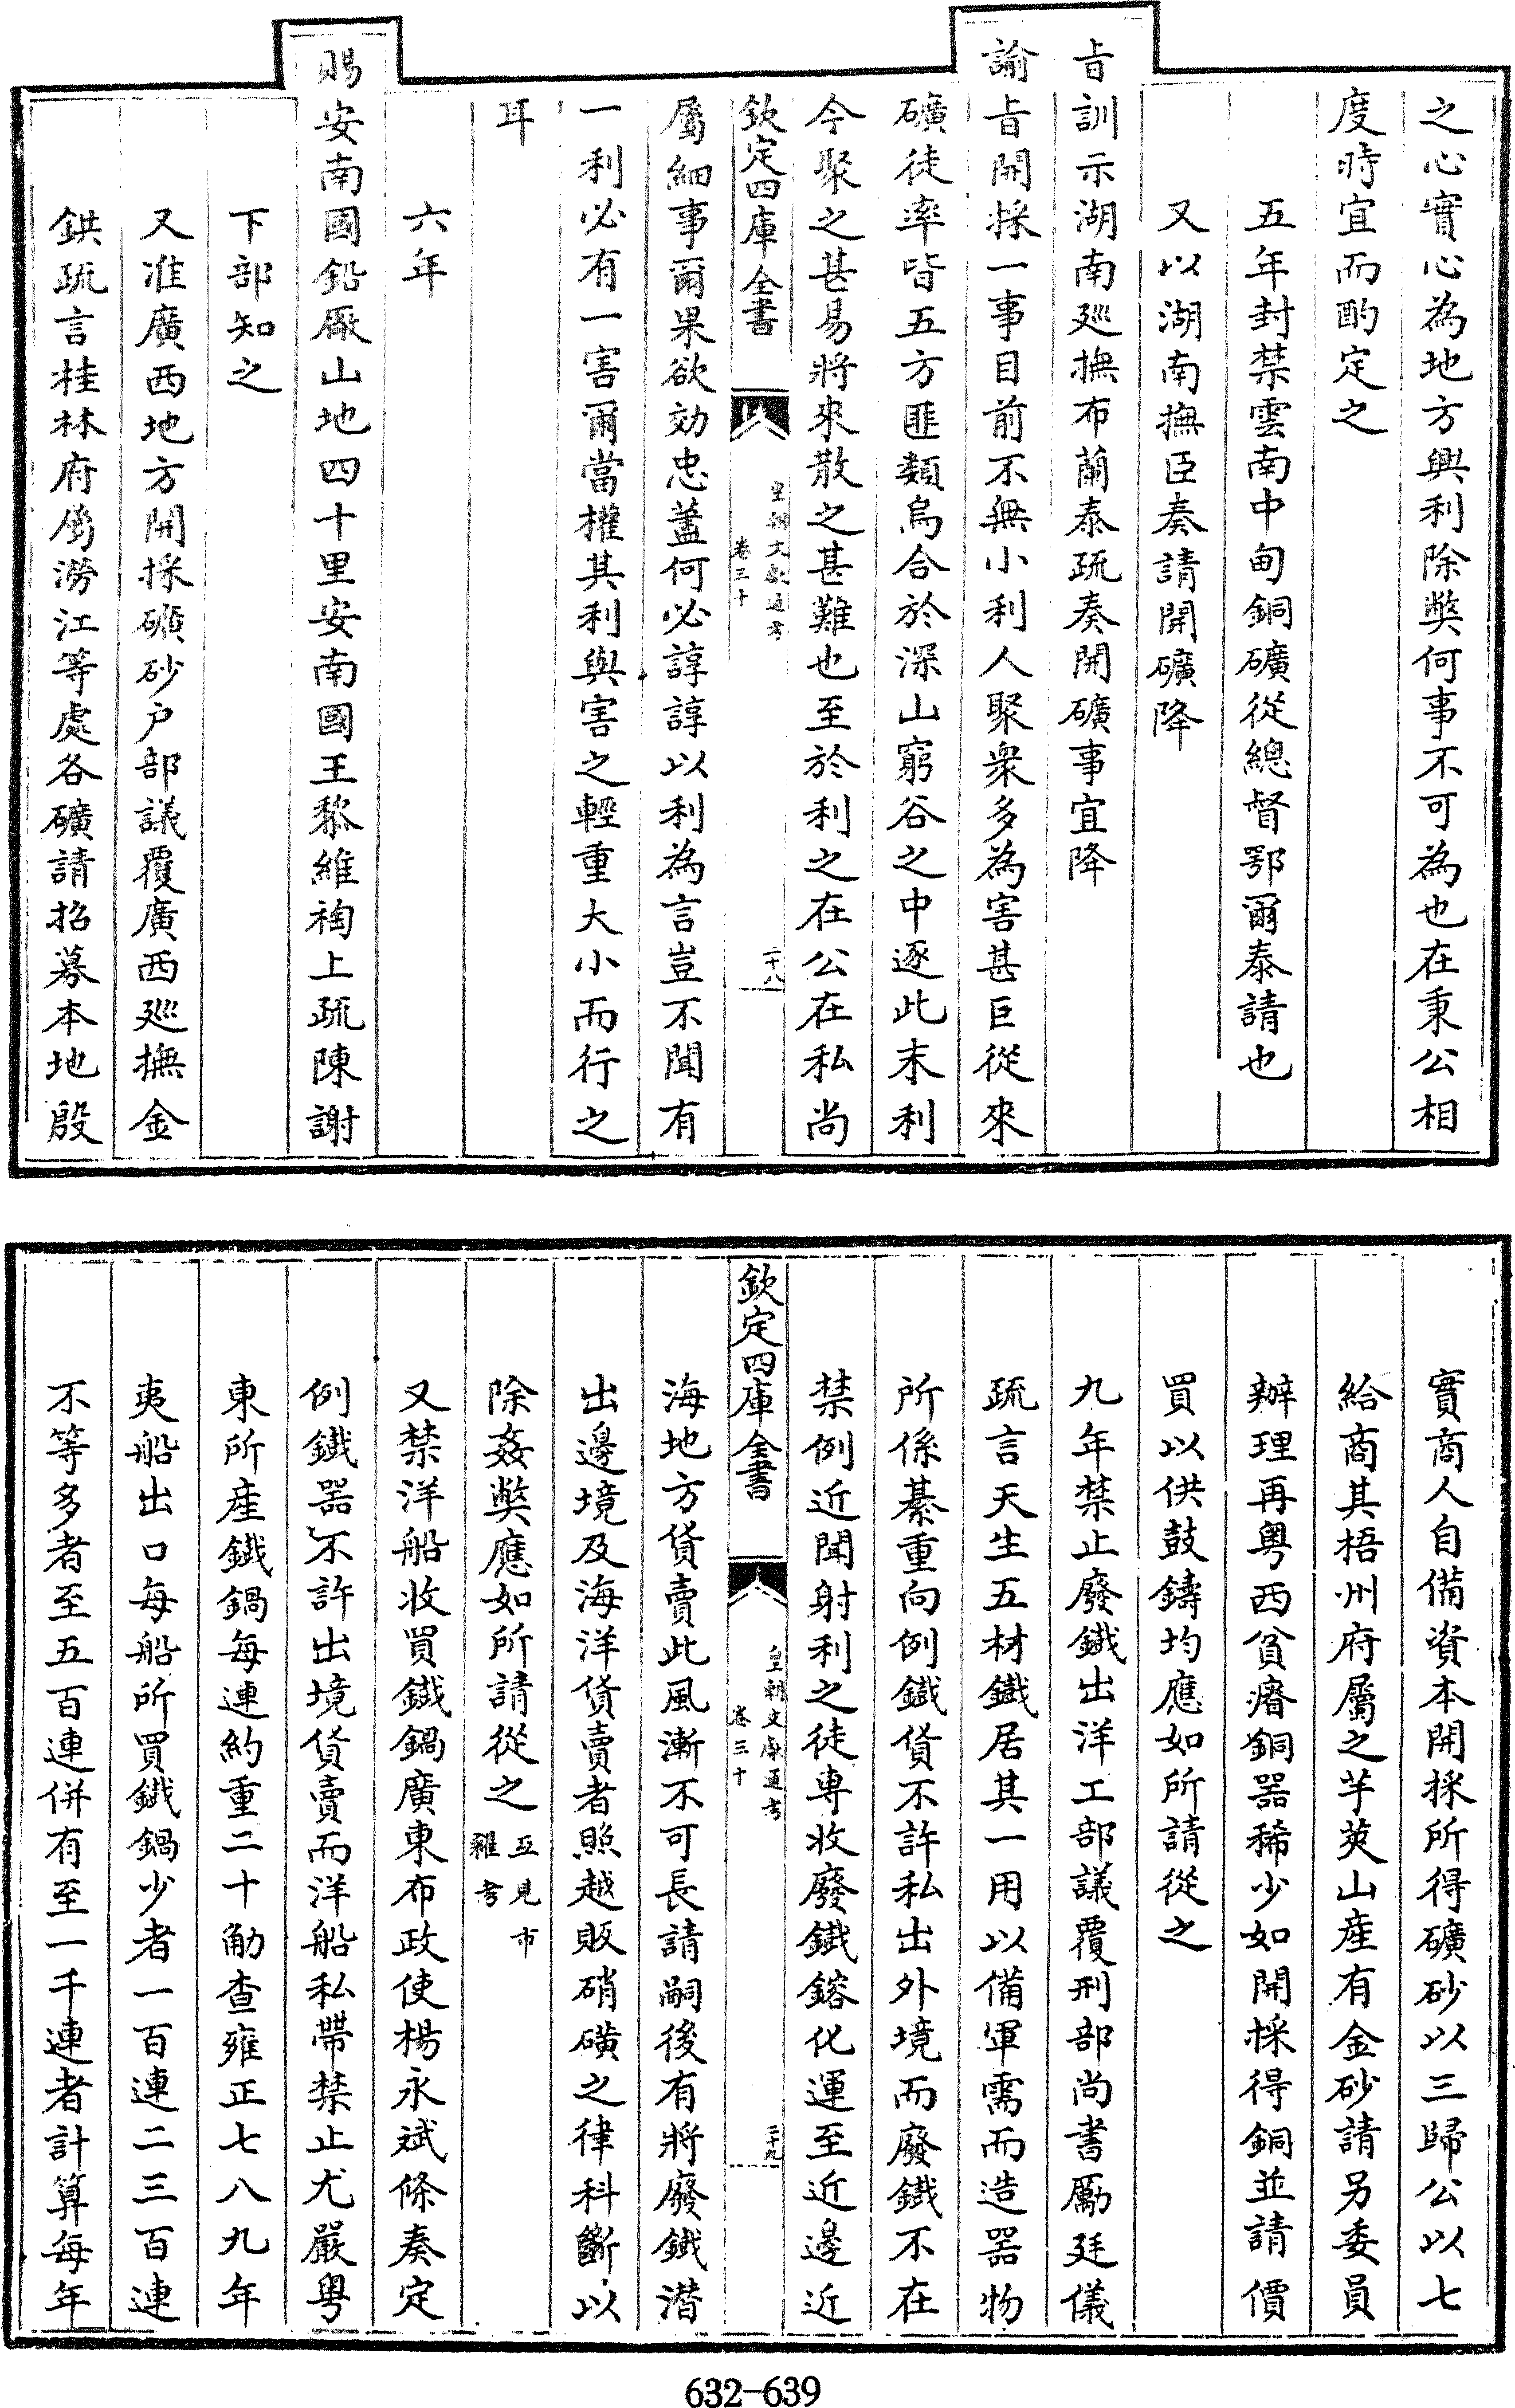 之心實心為地方興利除獘何事不可為也在秉公相
度時宜而酌定之
五年封禁雲南中甸銅礦從總督鄂爾泰請也
又以湖南撫臣奏請開礦降
㫖訓示湖南廵撫布蘭泰疏奏開礦事宜降
諭㫖開採一事目前不無小利人聚衆多為害甚巨從來
礦徒率皆五方匪類烏合於深山窮谷之中逐此末利
今聚之甚易將來散之甚難也至於利之在公在私尚
欽定四庫全書
皇朝文獻通考
卷三十
二十八
屬細事爾果欲効忠藎何必諄諄以利為言豈不聞有
一利必有一害爾當權其利與害之輕重大小而行之
耳
六年
賜安南國鉛廠山地四十里安南國王黎維祹上疏陳謝
下部知之
又准廣西地方開採礦砂户部議覆廣西廵撫金
鉷疏言桂林府屬澇江等處各礦請招募本地殷
實商人自備資本開採所得礦砂以三歸公以七
給商其梧州府屬之芋莢山産有金砂請另委員
辦理再粤西貧瘠銅器稀少如開採得銅並請價
買以供鼓鑄均應如所請從之
九年禁止廢鐵出洋工部議覆刑部尚書勵廷儀
疏言天生五材鐵居其一用以備軍需而造器物
所係綦重向例鐵貨不許私出外境而廢鐵不在
禁例近聞射利之徒専收廢鐵鎔化運至近邊近
欽定四庫全書
皇朝文獻通考
卷三十
二十九
海地方貨賣此風漸不可長請嗣後有將廢鐵潛
出邊境及海洋貨賣者照越販硝磺之律科斷以
除姦獘應如所請從之 互見市糴考
又禁洋船收買鐵鍋廣東布政使楊永斌條奏定
例鐵器不許出境貨賣而洋船私帶禁止尤嚴粤
東所産鐵鍋每連約重二十觔查雍正七八九年
夷船出口每船所買鐵鍋少者一百連二三百連
不等多者至五百連併有至一千連者計算每年
632-639